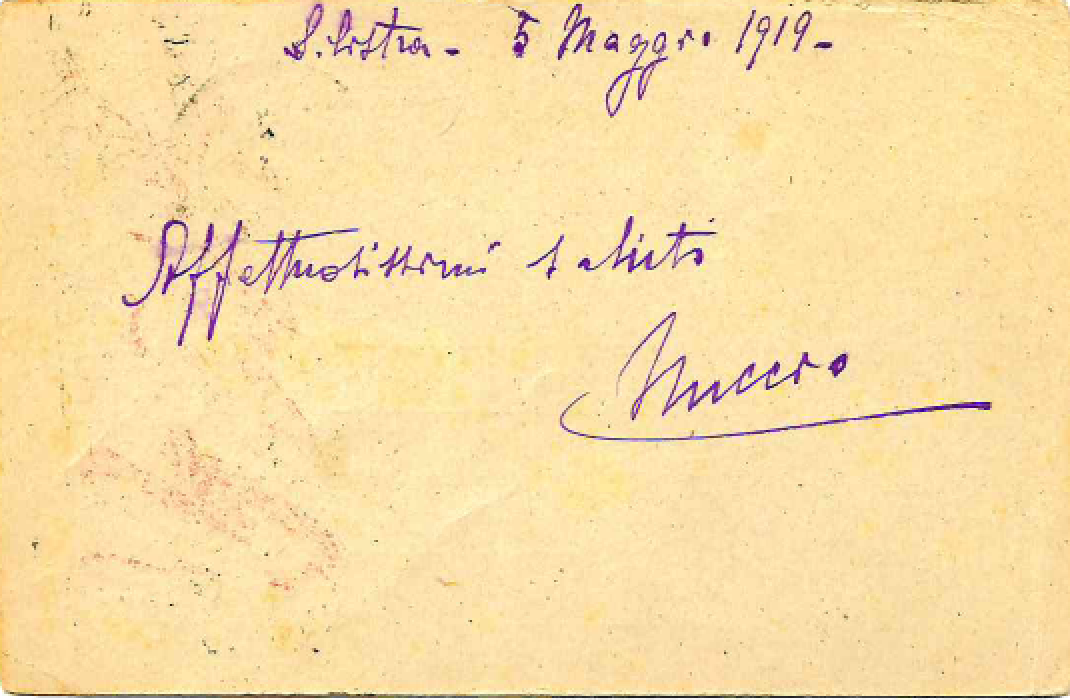 Silistra - 5 Maggio 1919 -
Affettuosissimi saluti
Nuccio